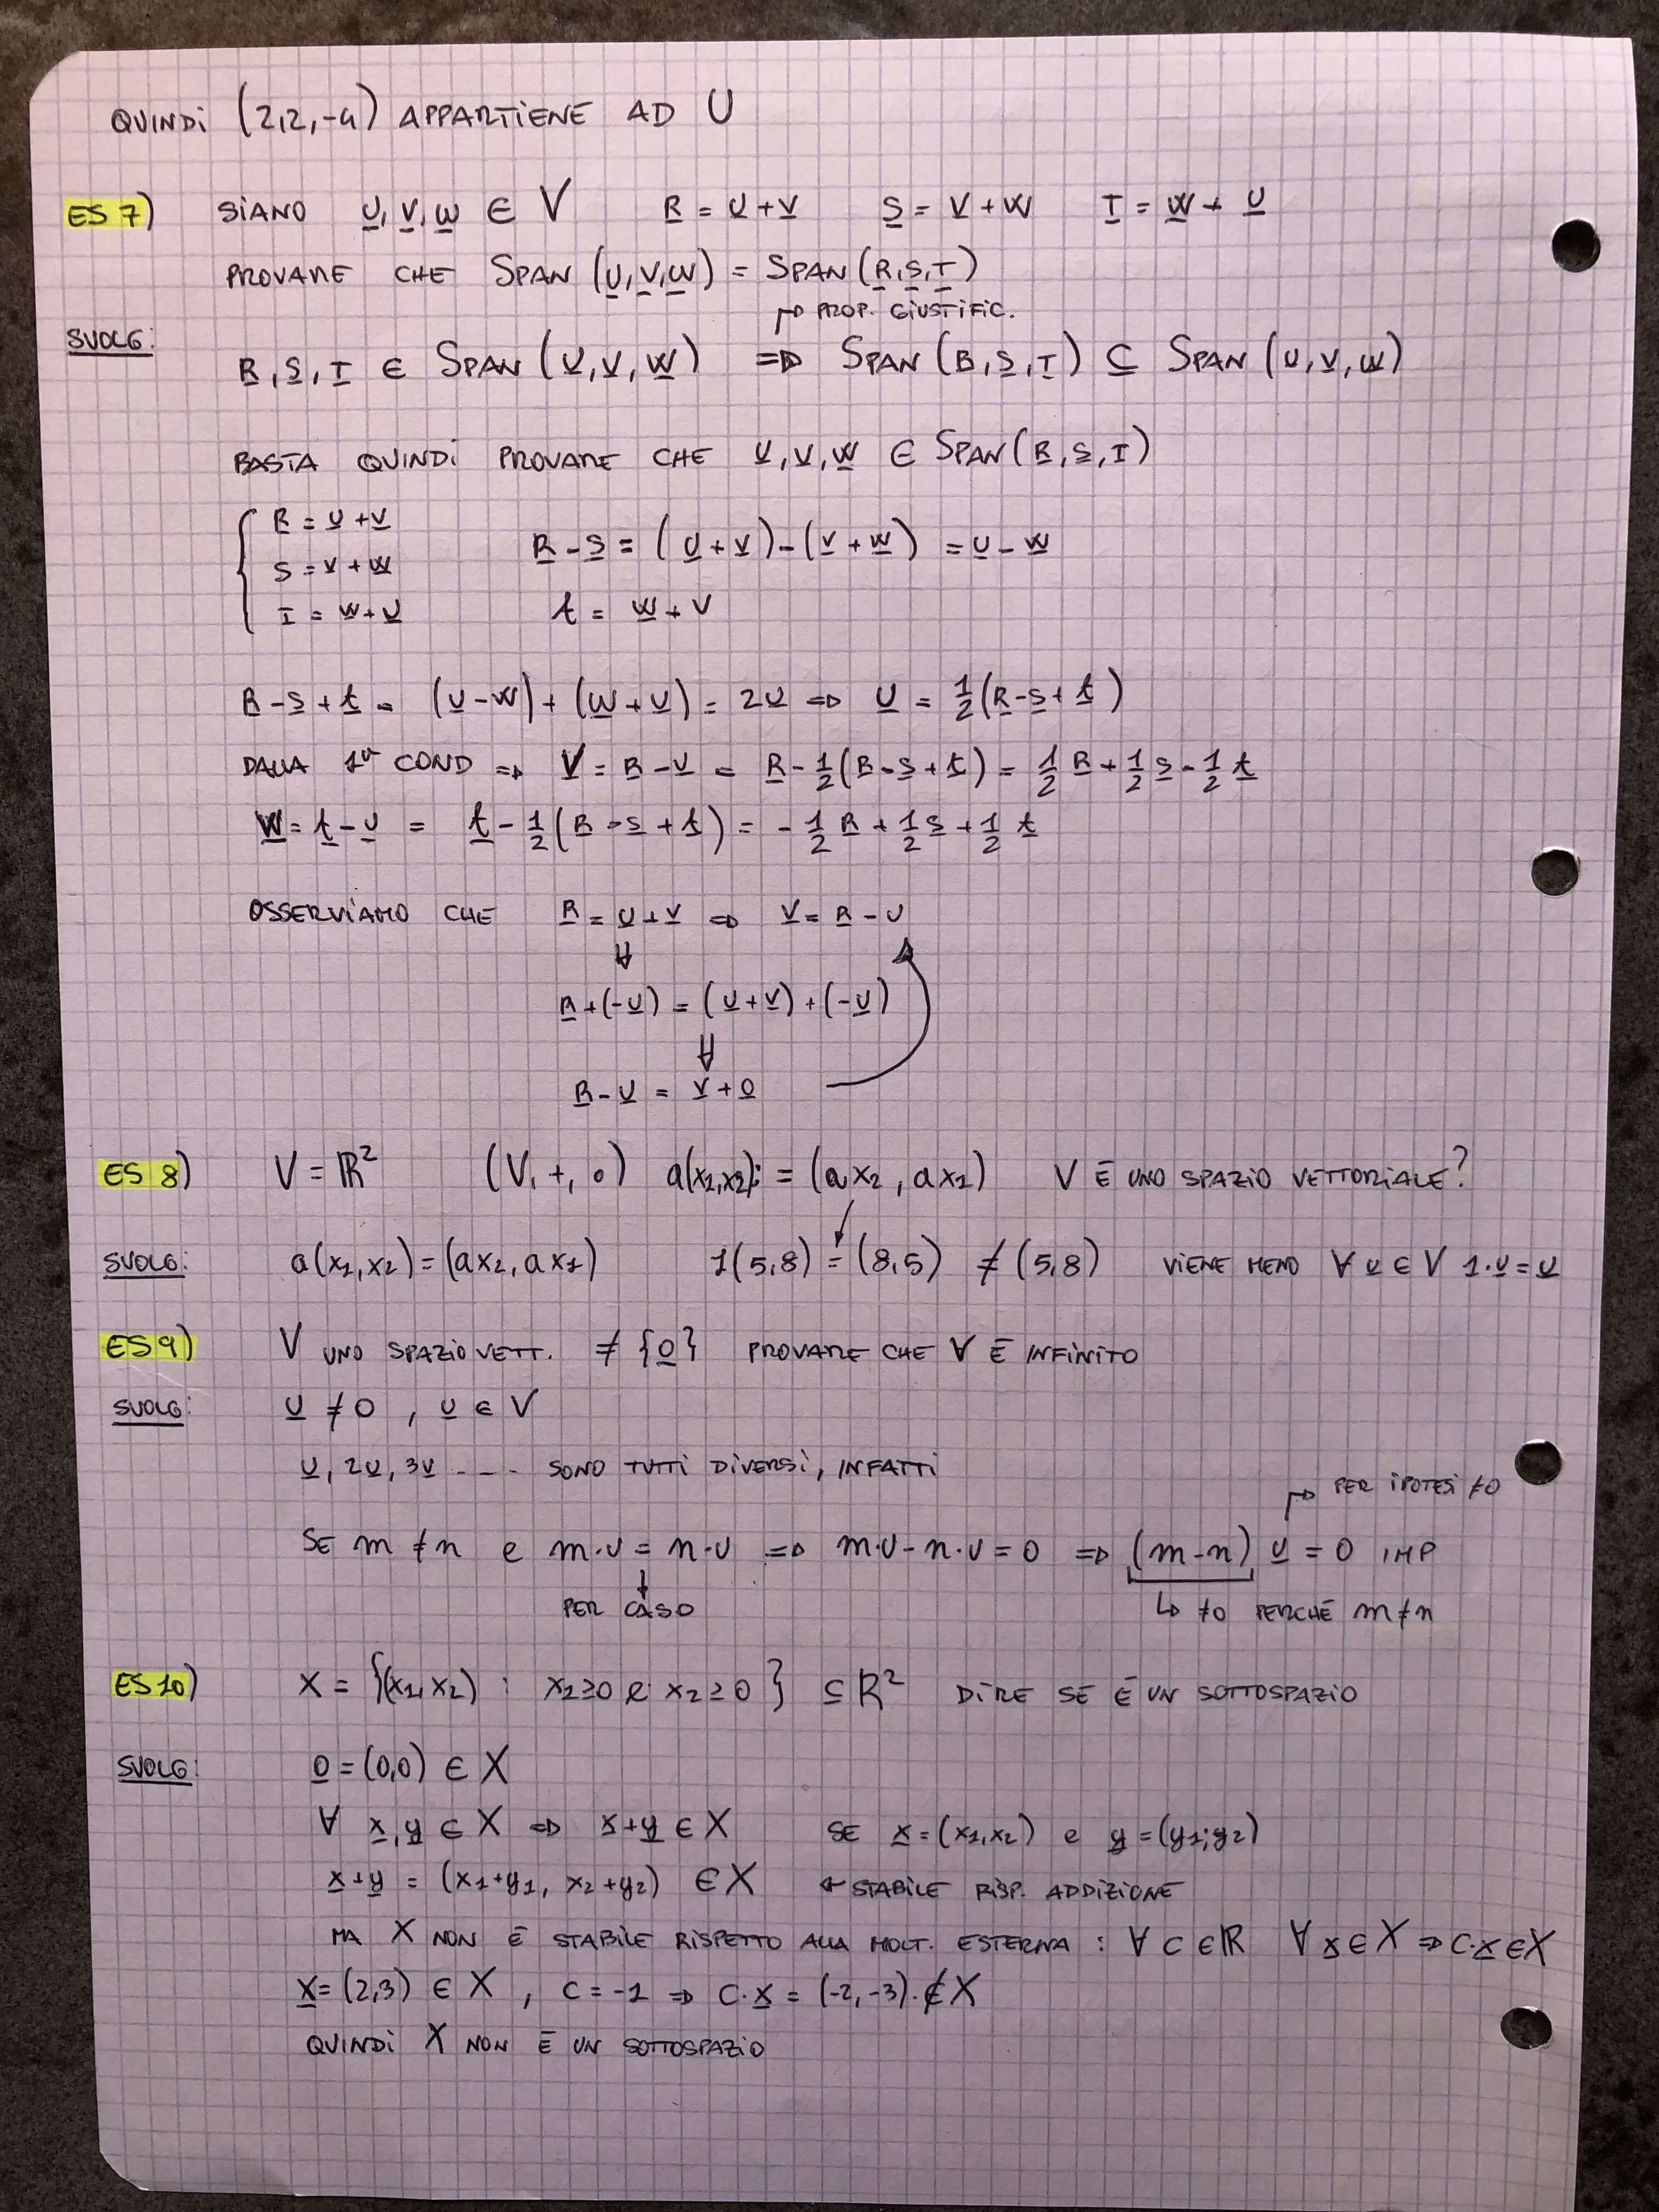 QUINDI (2,2,-4) APPARTIENE AD U
ES 7) SIANO U, V, W ∈ V R = U+V S = V+W T = W+U
PROVARE CHE SPAN (U,V,W) = SPAN (R,S,T)
↱ PROP. GIUSTIFIC.
SVOLG: R, S, T ∈ SPAN (U,V,W) ⇒ SPAN (R,S,T) ⊆ SPAN (U,V,W)
BASTA QUINDI PROVARE CHE U,V,W ∈ SPAN (R,S,T)
{ R = U+V
S = V+W R-S = (U+V)-(V+W) = U-W
T = W+U t = W+V
R-S+t = (U-W)+(W+U) = 2U ⇒ U = 1/2(R-S+t)
DALLA 1ª COND ⇒ V = R-U = R-1/2(R-S+t) = 1/2 R + 1/2 S - 1/2 t
W = t-U = t-1/2(R-S+t) = -1/2 R + 1/2 S + 1/2 t
OSSERVIAMO CHE R = U+V ⇒ V = R-U
⇓
R+(-U) = (U+V)+(-U)
⇓
R-U = V+0
ES 8) V = ℝ² (V,+,∘) a(x1,x2):=(ax2, ax1) V È UNO SPAZIO VETTORIALE?
SVOLG: a(x1,x2)=(ax2,ax1) 1(5,8)=(8,5) ≠ (5,8) VIENE MENO ∀ U ∈ V 1·U=U
ES 9) V UNO SPAZIO VETT. ≠ {0} PROVARE CHE V È INFINITO
SVOLG: U ≠ 0 , U ∈ V
U, 2U, 3U - - - SONO TUTTI DIVERSI, INFATTI
↱ PER IPOTESI ≠0
SE m ≠ n e m·U = n·U ⇒ m·U-n·U = 0 ⇒ (m-n) U = 0 IMP
↓ PER CASO ↳ ≠0 PERCHÉ m≠n
ES 10) X = {(x1,x2) : x1≥0 e x2≥0} ⊆ ℝ² DIRE SE È UN SOTTOSPAZIO
SVOLG: 0 = (0,0) ∈ X
∀ x,y ∈ X ⇒ x+y ∈ X SE x=(x1,x2) e y=(y1;y2)
x+y = (x1+y1, x2+y2) ∈ X ← STABILE RISP. ADDIZIONE
MA X NON È STABILE RISPETTO ALLA MOLT. ESTERNA : ∀ C∈ℝ ∀ x∈X ⇒ C·x∈X
x=(2,3) ∈ X , C=-1 ⇒ C·x = (-2,-3)·∉X
QUINDI X NON È UN SOTTOSPAZIO